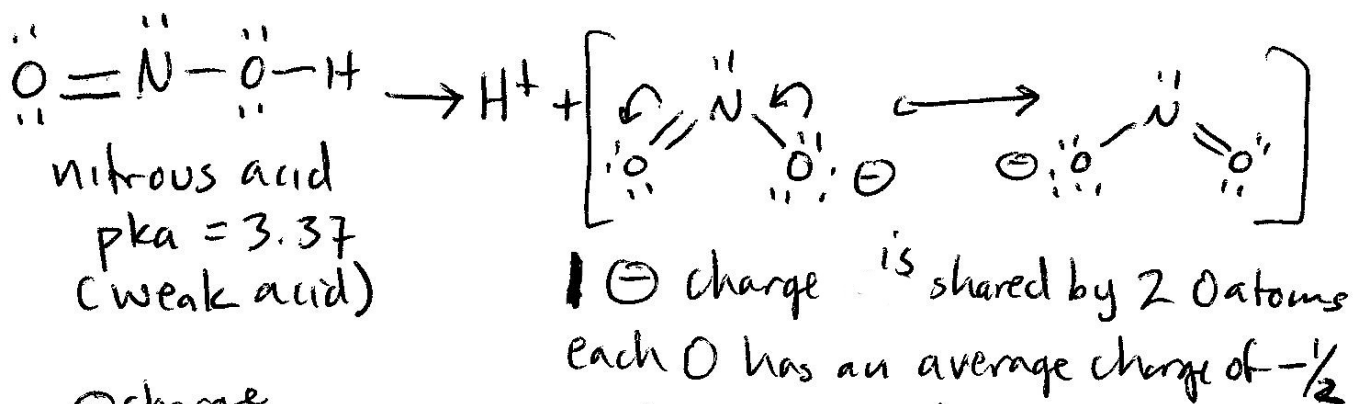 O=N-O-H → H⁺ + [O=N-O: ⊖ ⟷ ⊖:O-N=O]
nitrous acid
pka = 3.37
(weak acid)
1 ⊖ charge is shared by 2 O atoms
each O has an average charge of -1/2
⊖charge